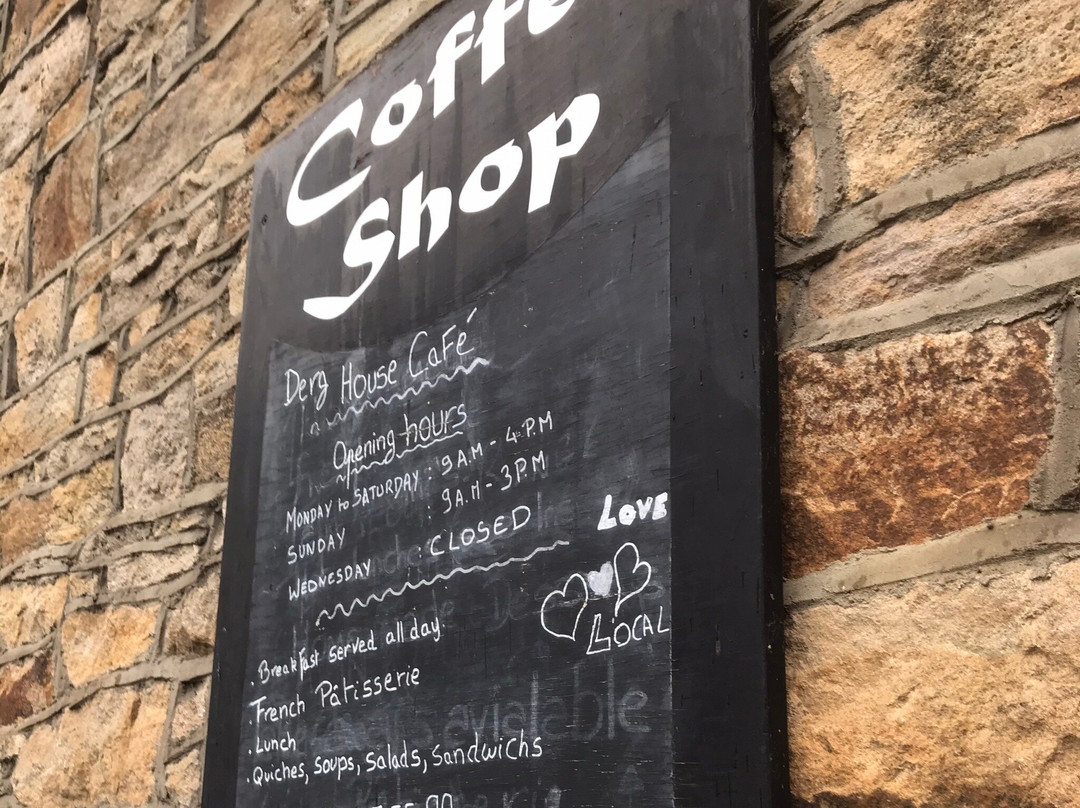 Coffe
Shop
Derg House Café
Opening hours
MONDAY to SATURDAY : 9A.M - 4P.M
SUNDAY : 9A.M - 3P.M
WEDNESDAY : CLOSED
LOVE
LOCAL
. Breakfast served all day.
. French Pâtisserie
. Lunch
. Quiches, soups, salads, sandwichs
avialable